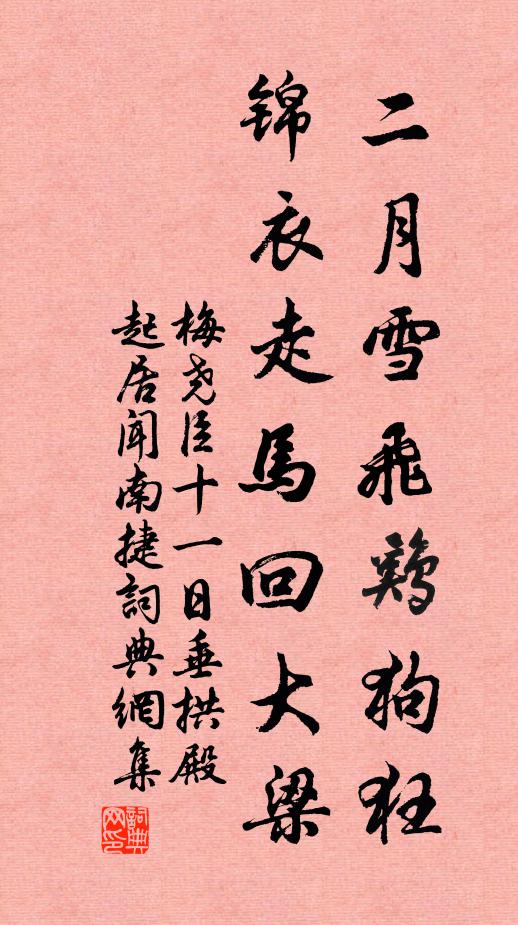 二月雪飛鶏狗狂
锦衣走馬回大梁
梅尧臣十一日垂拱殿
起居闻南捷詞典網集
詞典网印